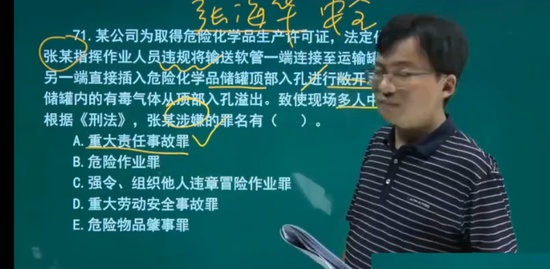 张海华 安全
71. 某公司为取得危险化学品生产许可证，法定
张某指挥作业人员违规将输送软管一端连接至运输罐
另一端直接插入危险化学品储罐顶部入孔进行敞开
储罐内的有毒气体从顶部入孔溢出。致使现场多人中
根据《刑法》，张某涉嫌的罪名有（ ）。
A. 重大责任事故罪
B. 危险作业罪
C. 强令、组织他人违章冒险作业罪
D. 重大劳动安全事故罪
E. 危险物品肇事罪